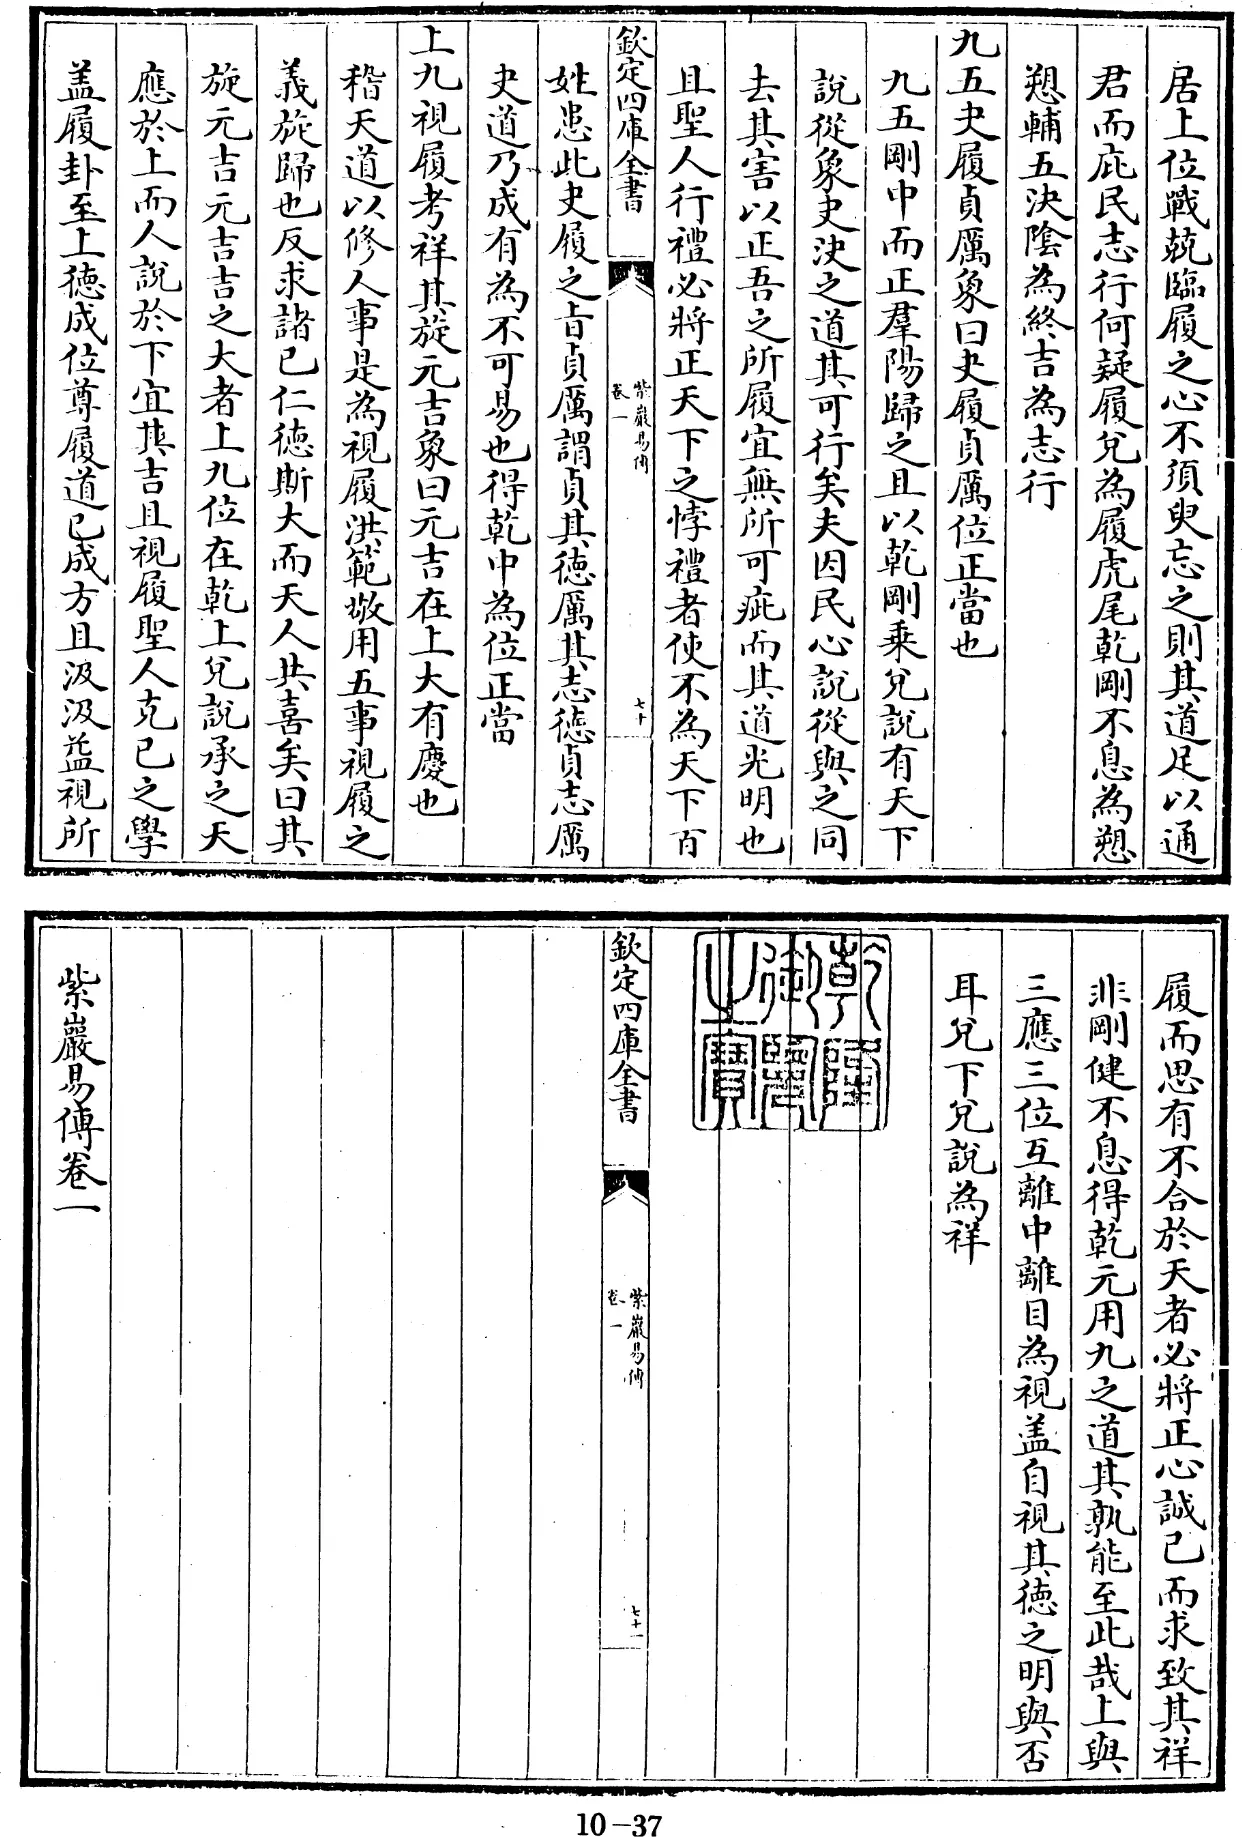 居上位戰兢臨履之心不須臾忘之則其道足以通
君而庇民志行何疑履兌為履虎尾乾剛不息為愬
愬輔五決陰為終吉為志行
九五夬履貞厲象曰夬履貞厲位正當也
九五剛中而正羣陽歸之且以乾剛乘兌說有天下
說從象夬決之道其可行矣夫因民心說從與之同
去其害以正吾之所履宜無所可疵而其道光明也
且聖人行禮必將正天下之悖禮者使不為天下百
欽定四庫全書
紫巖易傳
卷一
七十
姓患此夬履之旨貞厲謂貞其德厲其志德貞志厲
夬道乃成有為不可易也得乾中為位正當
上九視履考祥其旋元吉象曰元吉在上大有慶也
稽天道以修人事是為視履洪範敬用五事視履之
義旋歸也反求諸己仁德斯大而天人共喜矣曰其
旋元吉元吉吉之大者上九位在乾上兌說承之天
應於上而人說於下宜其吉且視履聖人克己之學
盖履卦至上德成位尊履道已成方且汲汲益視所
履而思有不合於天者必將正心誠己而求致其祥
非剛健不息得乾元用九之道其孰能至此哉上與
三應三位互離中離目為視盖自視其德之明與否
耳兌下兌說為祥
乾隆御覽之寶
欽定四庫全書
紫巖易傳
卷一
七十一
紫巖易傳卷一
10-37